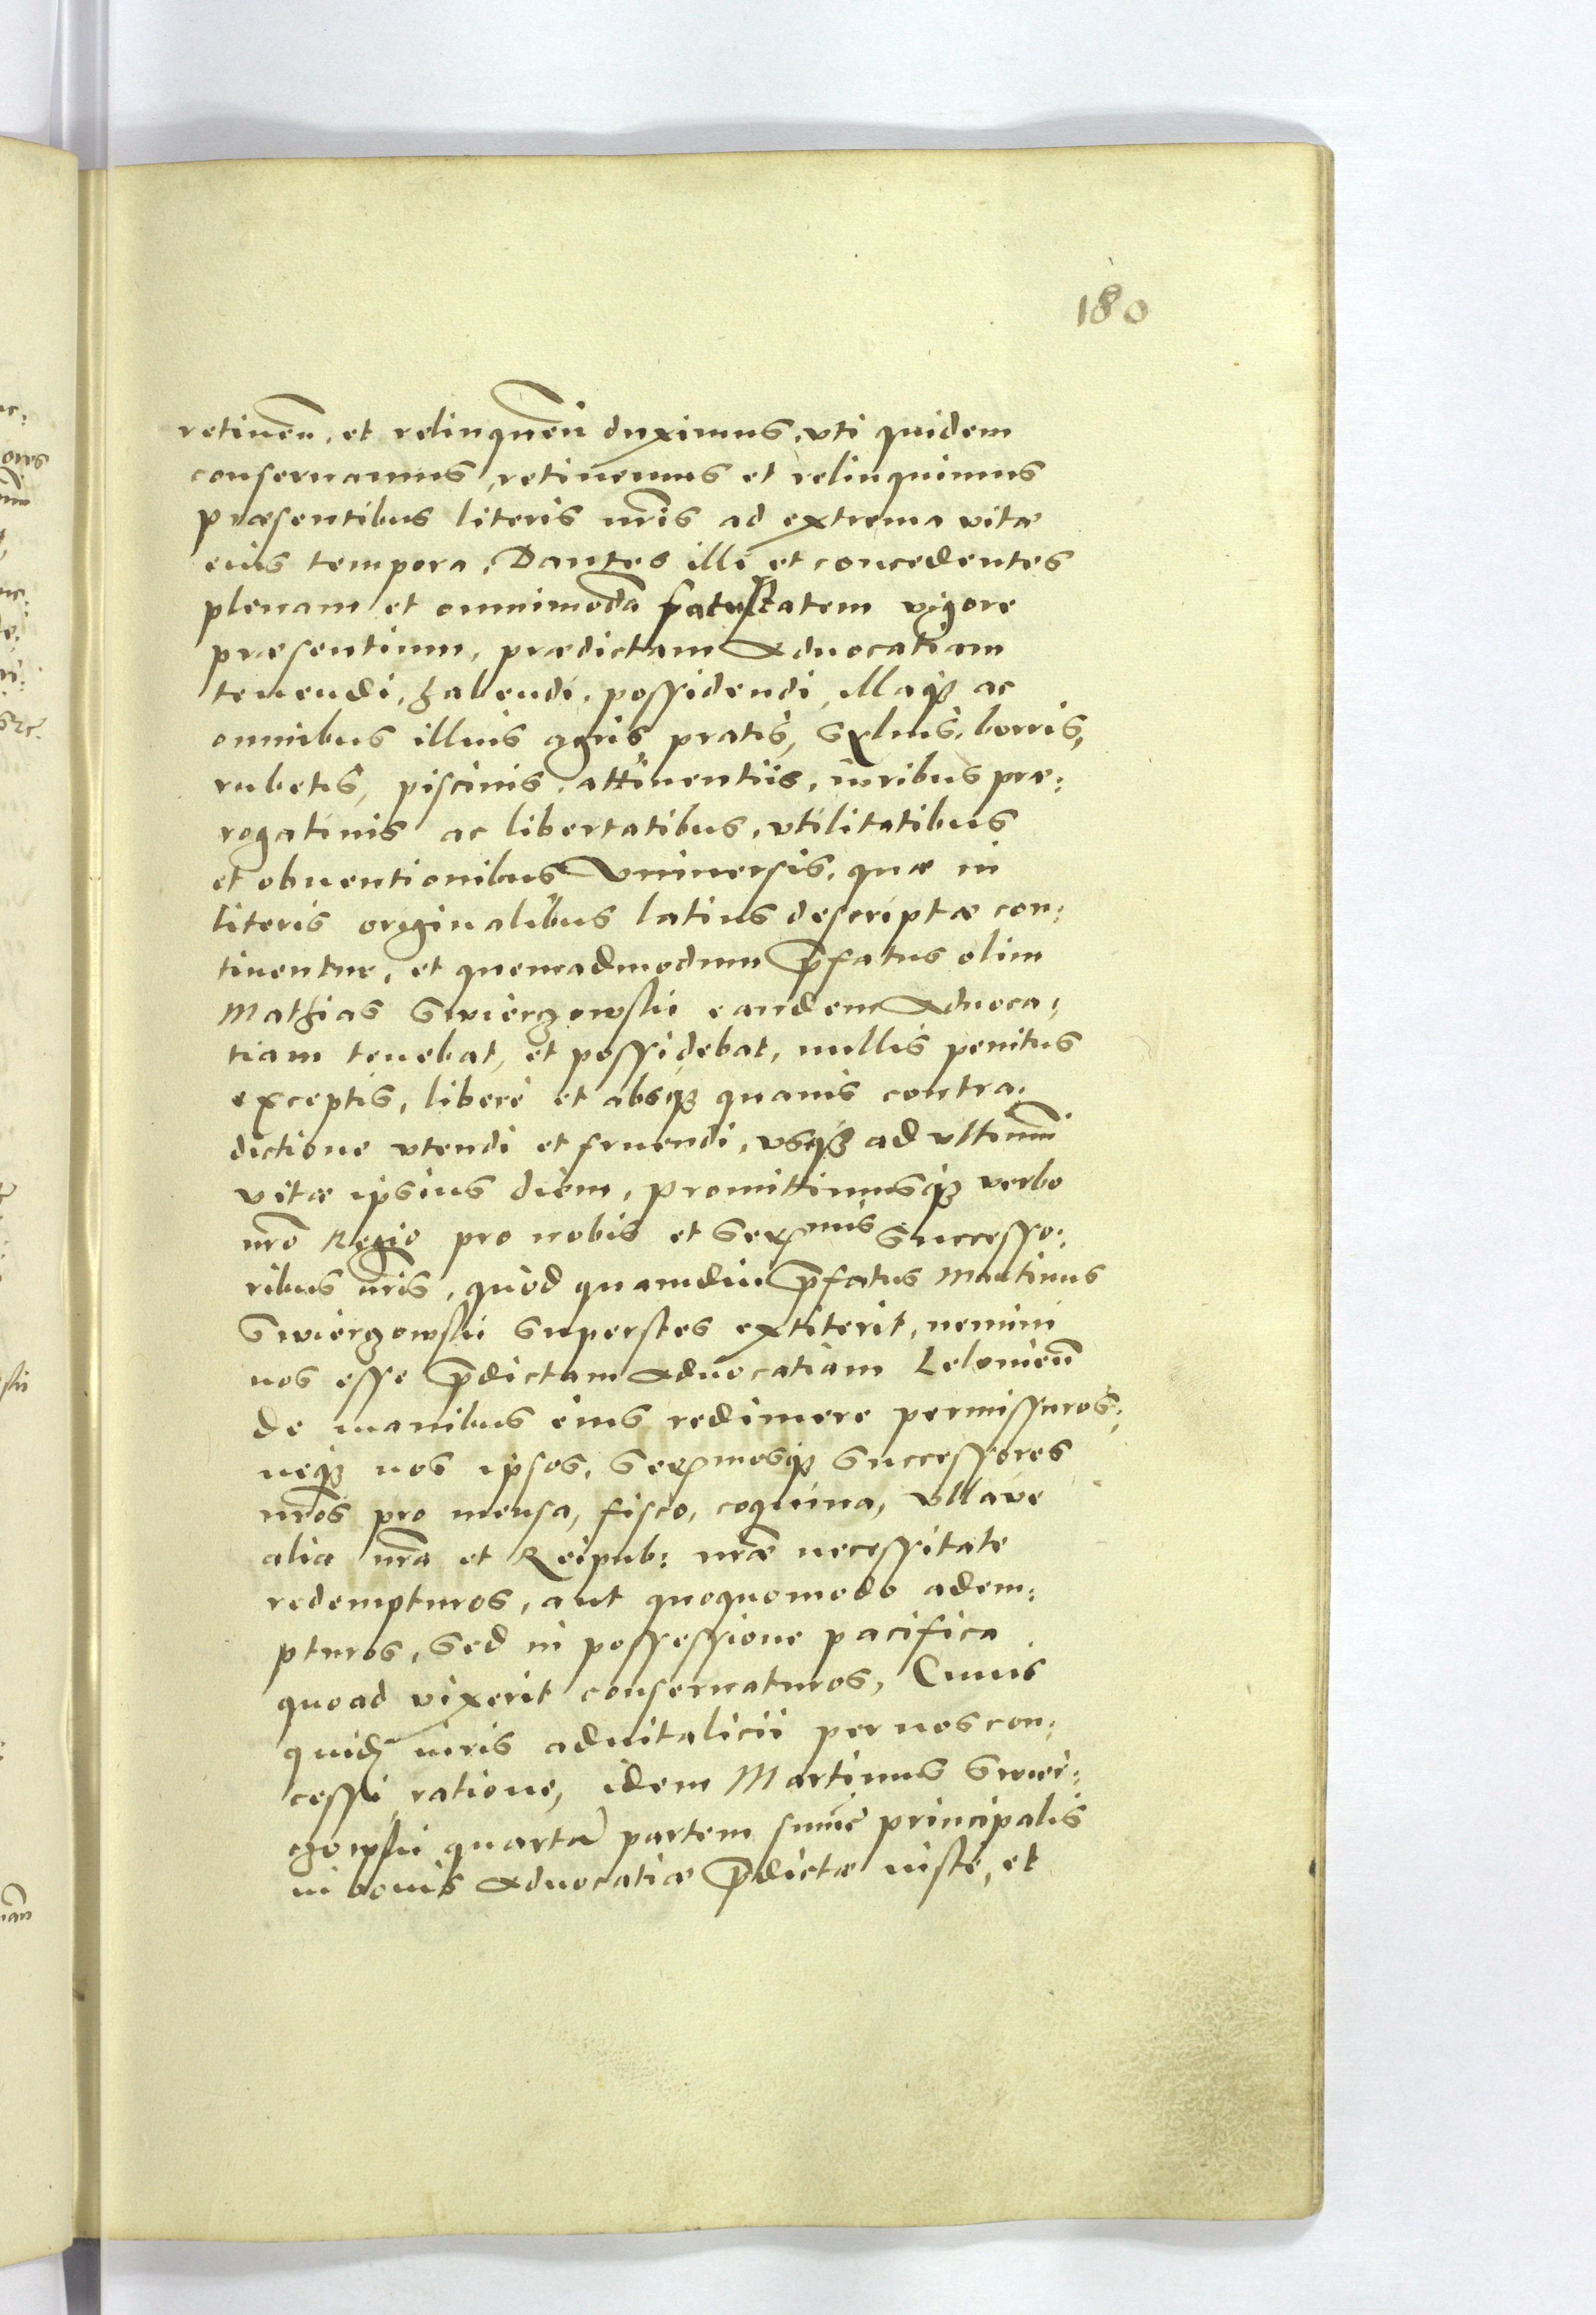 180
retinen̄, et relinquen̄ duximus, vti quidem
conseruamus, retinemus et relinquimus
præsentibus literis nr̄is ad extrema vitæ
eius tempora, Dantes illi et concedentes
plenam et omnimodā facultatem vigore
præsentium, prædictam Aduocatiam
tenendi, habendi, possidendi, illaq3 ac
omnibus illius agris, pratis, syluis, borris,
rubetis, piscinis, attinentiis, iuribus præ:
rogatiuis ac libertatibus, vtilitatibus
et obuentionibus Vniuersis, quæ in
literis originalibus latius descriptæ con:
tinentur, et quemadmodum p̄fatus olim
Mathias Swierzowskii eandem Aduoca:
tiam tenebat, et possidebat, nullis penitus
exceptis, liberè et absq3 quauis contra:
dictione vtendi et fruendi, vsq3 ad vltimū
vitæ ipsius diem, promittimusq3 verbo
nr̄o Regio pro nobis et Serēmis Successo:
ribus nr̄is, quod quamdiu p̄fatus Martinus
Swierzowskii superstes extiterit, nemini
nos esse p̄dictam Aduocatiam Leloviēn
de manibus eius redimere permissuros:
neq3 nos ipsos, Serēmosq3 Successores
nr̄os pro mensa, fisco, coquina, vllave
alia nr̄a et Reipub: nr̄æ necessitate
redempturos, aut quoquomodo adem:
pturos, sed in possessione pacifica
quoad vixerit conseruaturos, Cuius
quid̄ iuris aduitalicii per nos con:
cessi, ratione, idem Martinus Swier:
zowskii quartā partem sum̄æ principalis
in bonis Aduocatiæ p̄dictæ iustè, et